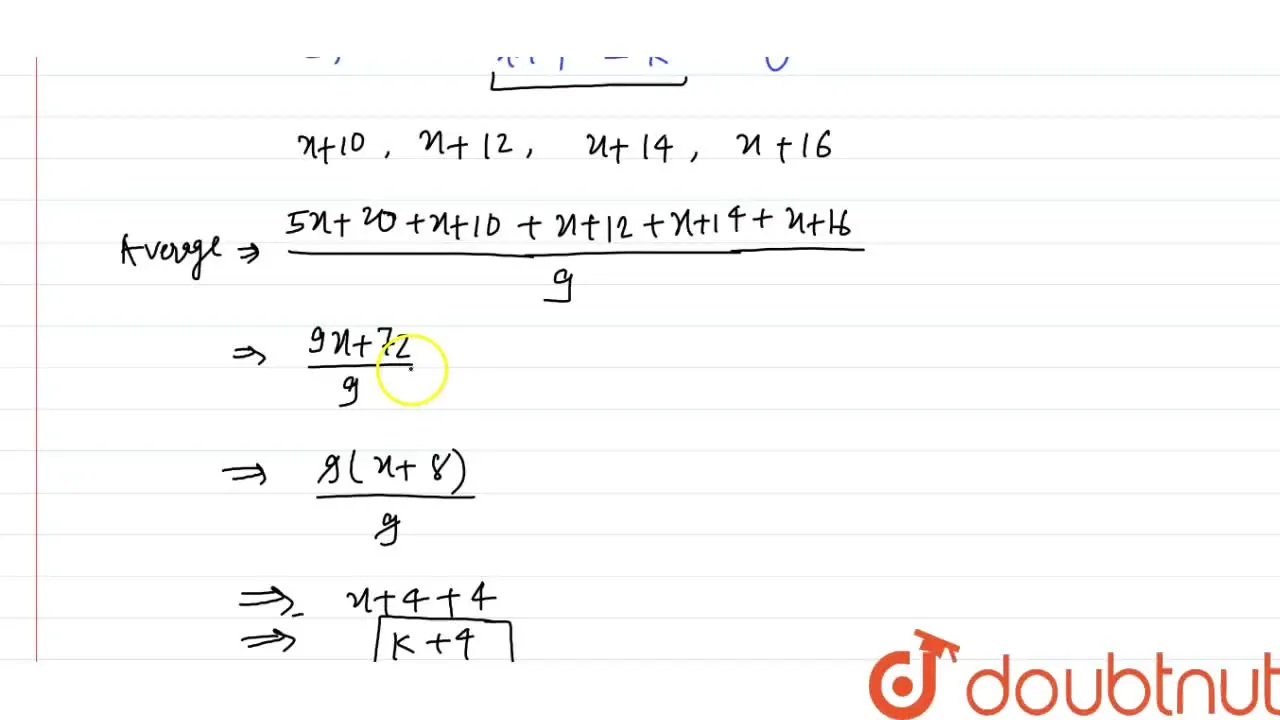 x+10, x+12, x+14, x+16
Average ⇒ 5x+20+x+10+x+12+x+14+x+16
9
⇒ 9x+72
9
⇒ 9(x+8)
9
⇒ x+4+4
⇒ K+4
doubtnut